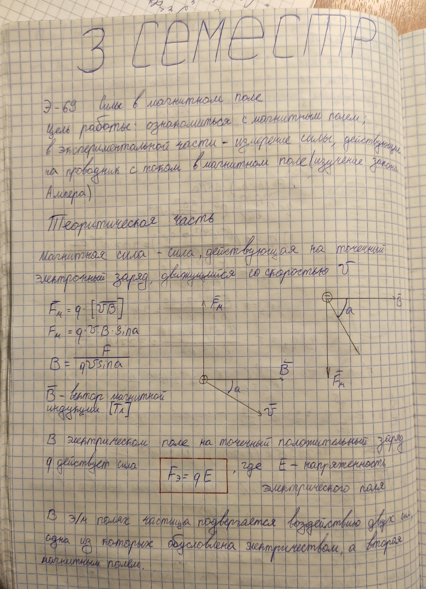 3 СЕМЕСТР
Э-69 Силы в магнитном поле
Цель работы: ознакомиться с магнитным полем,
в экспериментальной части - измерение силы, действующей
на проводник с током в магнитном поле (изучение закона
Ампера)
Теоритическая часть
Магнитная сила - сила, действующая на точечный
электронный заряд, движущийся со скоростью v̅
F̅м = q · [v̅B̅]
Fм = q·v·B·sinα
B = F / qvsinα
B̅ - вектор магнитной
индукции [Тл]
F̅м
B̅
α
v̅
B̅
α
F̅м
В электрическом поле на точечный положительный заряд
q действует сила Fэ = qE, где E - напряженность
электрического поля
В э/м полях частица подвергается воздействию двух сил,
одна из которых обусловлена электричеством, а вторая
магнитным полем.